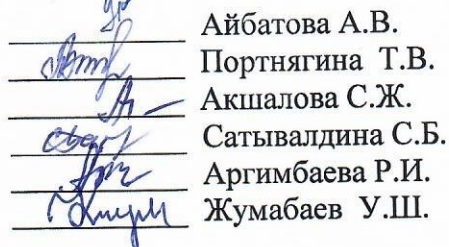 Айбатова А.В.
Портнягина Т.В.
Акшалова С.Ж.
Сатывалдина С.Б.
Аргимбаева Р.И.
Жумабаев У.Ш.